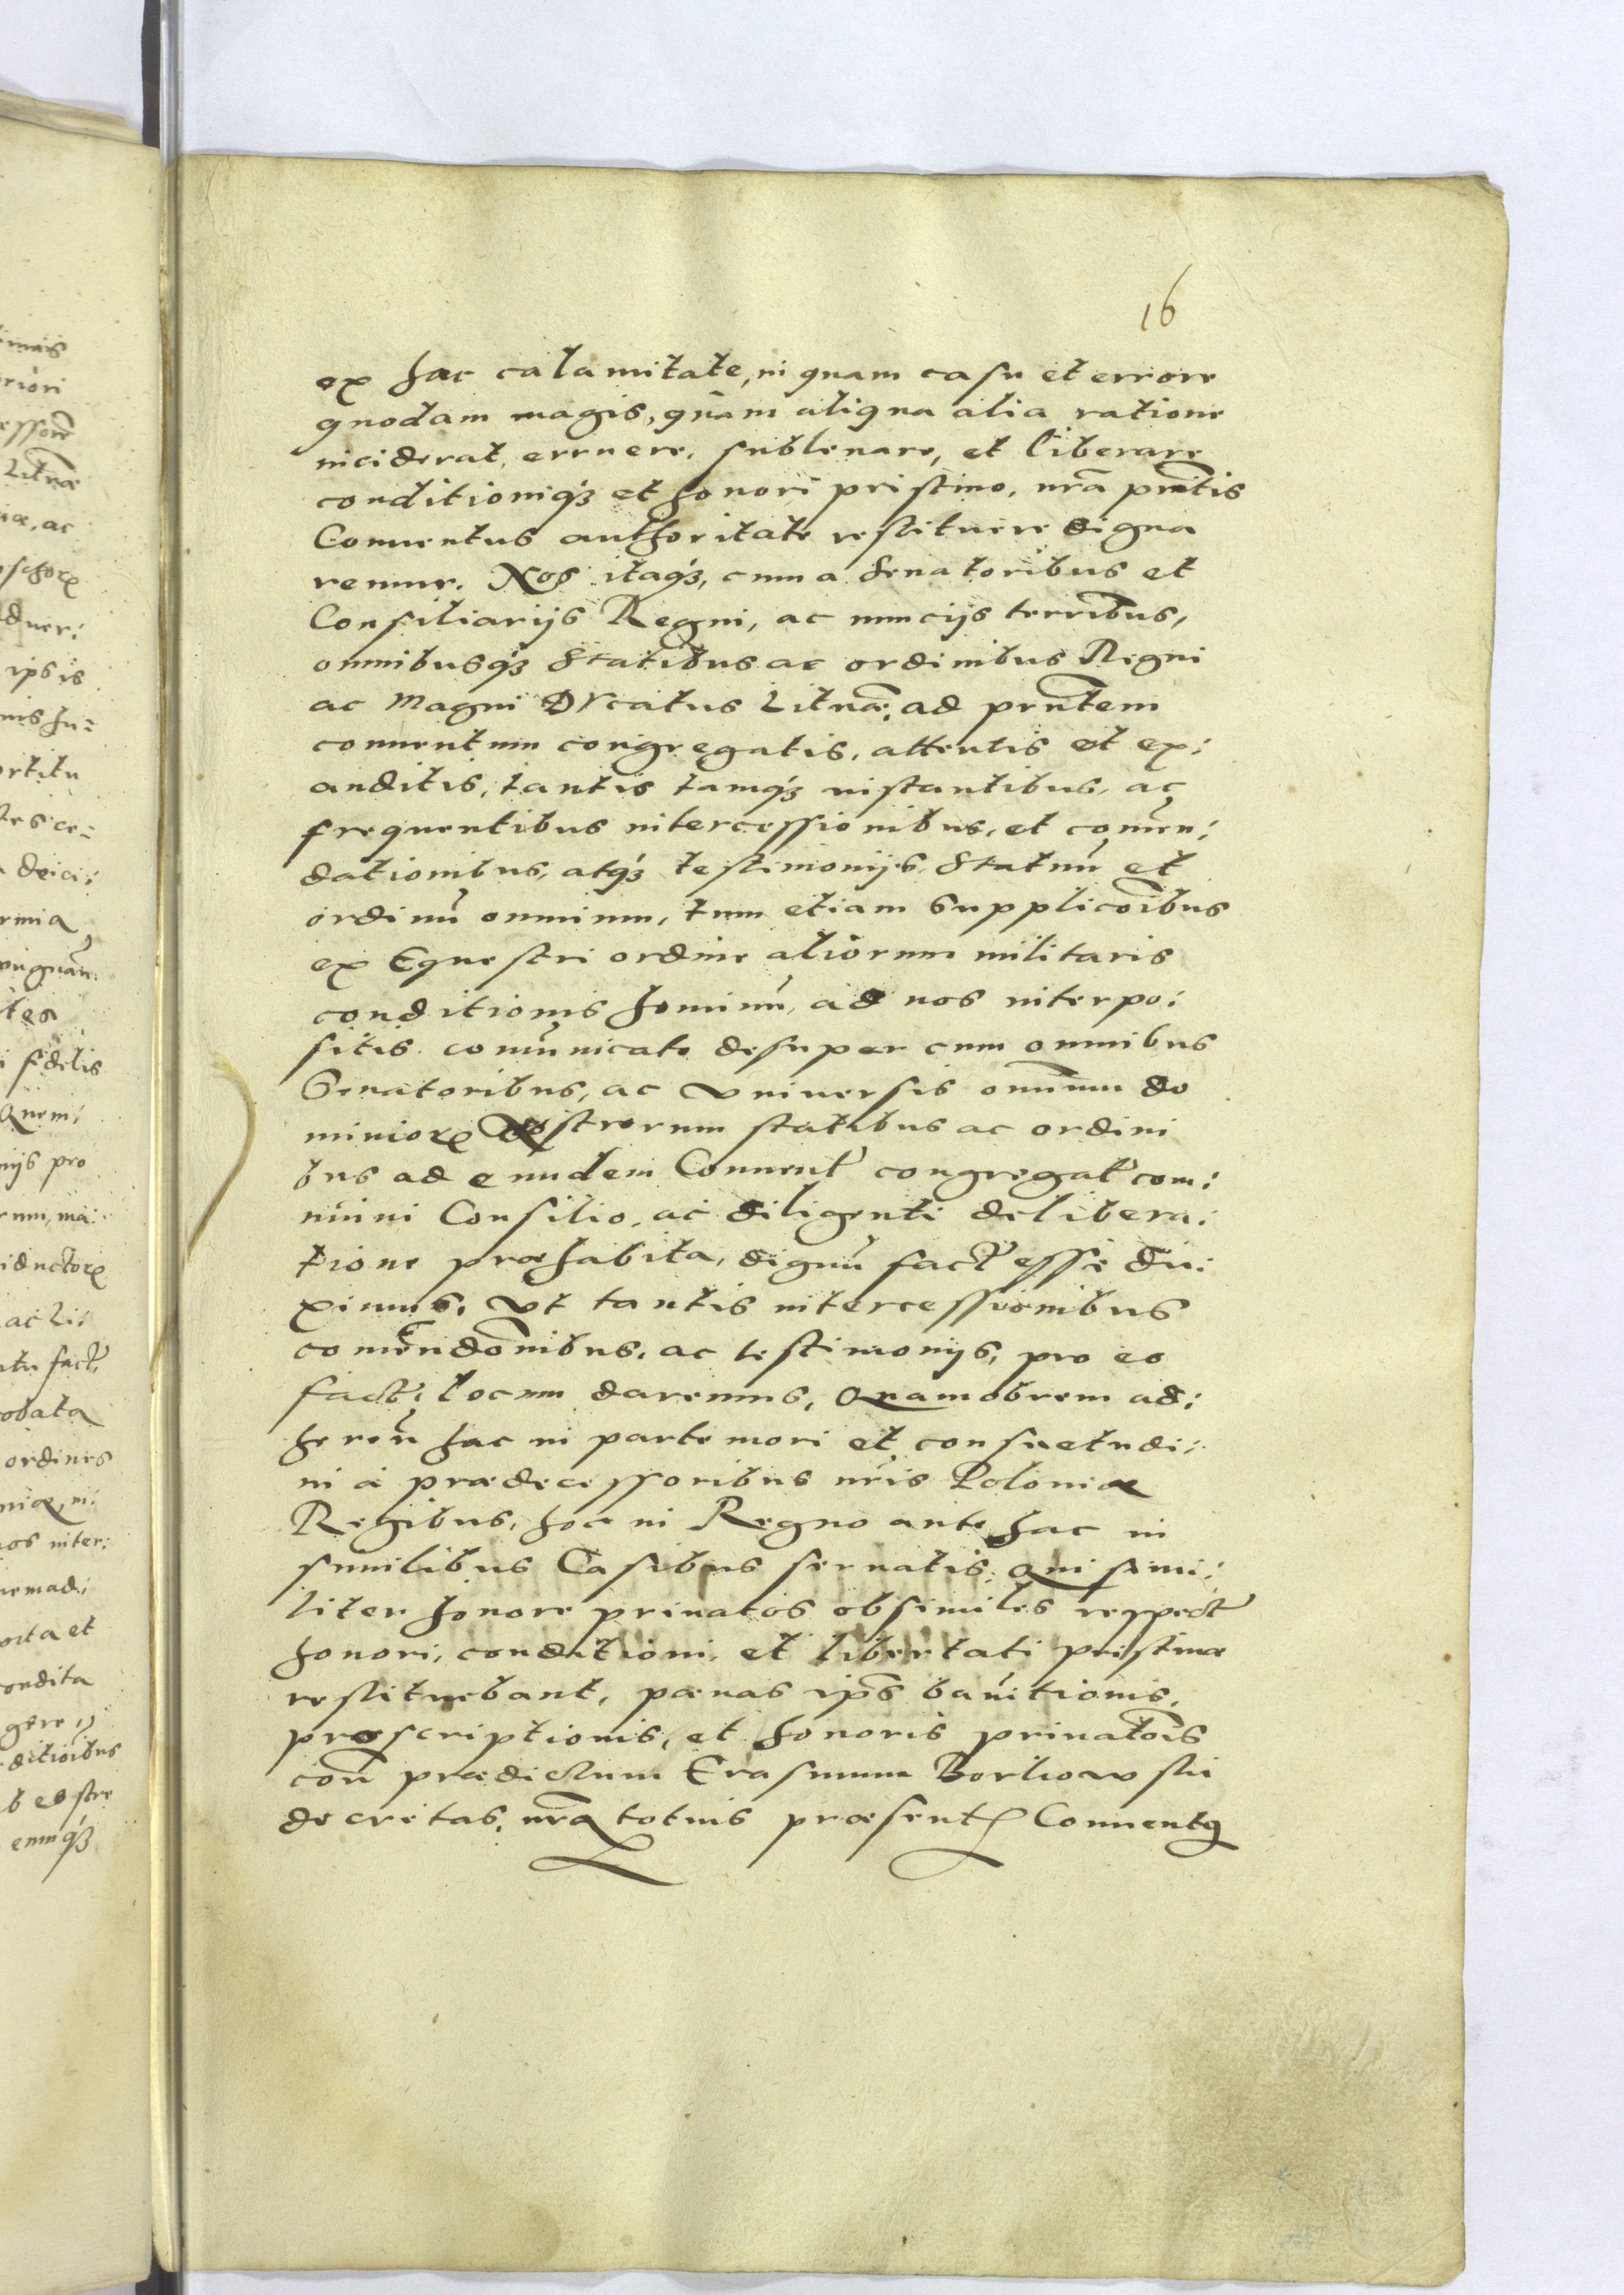 16
ex hac calamitate, in quam casu et errore
quodam magis, quàm aliqua alia ratione
inciderat, erruere, subleuare, et liberare
conditioniq́ꝫ et honori pristino, nr̃a pñtis
Conuentus authoritate restituere digna
remur. Nos itaq́ꝫ, cum a Senatoribus et
Consiliarijs Regni, ac nuncijs terribus,
omnibusq́ꝫ Statibus ac ordinibus Regni
ac Magni DVcatus Lituãe, ad pñtem
conuentum congregatis, attentis et ex:
auditis, tantis tamq́ꝫ instantibus, ac
frequentibus intercessionibus, et com̃en:
dationibus, atq́ꝫ testimonijs, Statuũ et
ordinũ omnium, tum etiam Supplicõibus
ex Equestri ordine aliorum militaris
conditionis hominũ, ad nos interpo:
sitis. com̃unicato desuper cum omnibus
Senatoribus, ac vniuersis omnium do
minioꝝ Nostrorum statibus ac ordini
bus ad eundem Conuent̃ congregat̃ com:
muni Consilio, ac diligenti delibera:
tione præhabita, dignũ fact̃ esse du:
ximus, vt tantis intercessionibus
com̃endõnibus, ac testimonijs, pro eo
fact̃, locum daremus, Quamobrem ad:
heren̂ hac in parte mori et consuetudi:
ni à prædecessoribus nr̃is Poloniæ
Regibus, hoc in Regno ante hac in
similibus Casibus seruatis, qui simi:
liter honore priuatos obsimiles respect̃
honori, conditioni, et libertati pristinæ
restituebant, pænas ip̃s bañitionis,
proscriptionis, et honoris priuatõis
coñ prædictum Erasmum
decretas, nr̃a totius præsentꝭ Conuentꝰ